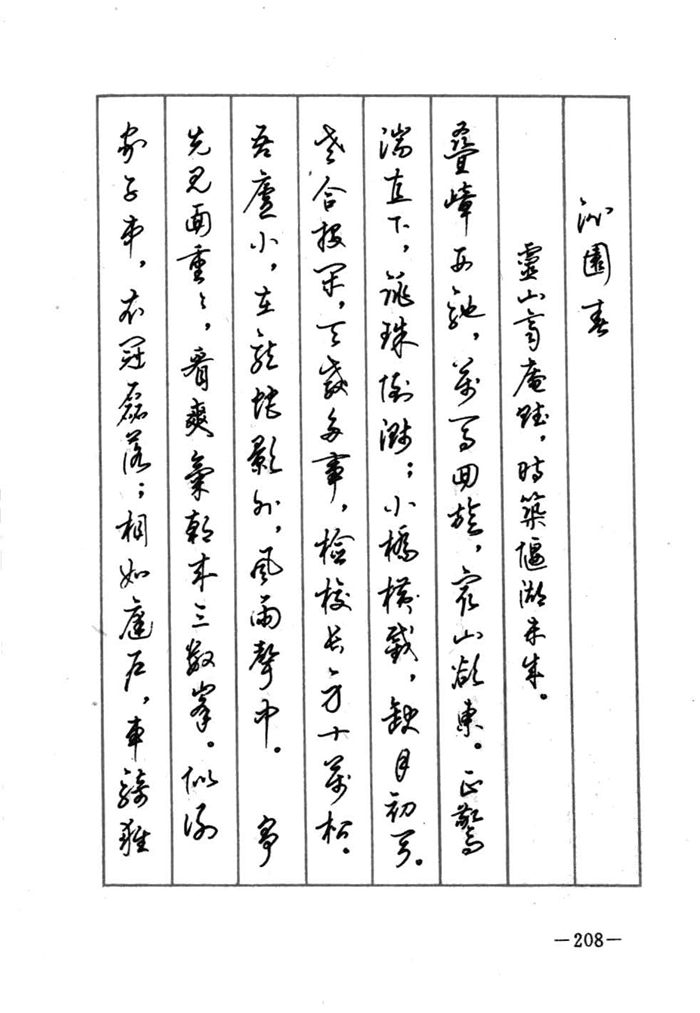 沁园春
靈山齊庵賦，時築偃湖未成。
疊嶂西馳，萬馬回旋，衆山欲東。正驚
湍直下，跳珠倒濺；小橋橫截，缺月初弓。
老合投閑，天教多事，檢校長身十萬松。
吾廬小，在龍蛇影外，風雨聲中。 爭
先見面重々，看爽氣朝來三數峯。似謝
家子弟，衣冠磊落；相如庭户，車騎雍
—208—